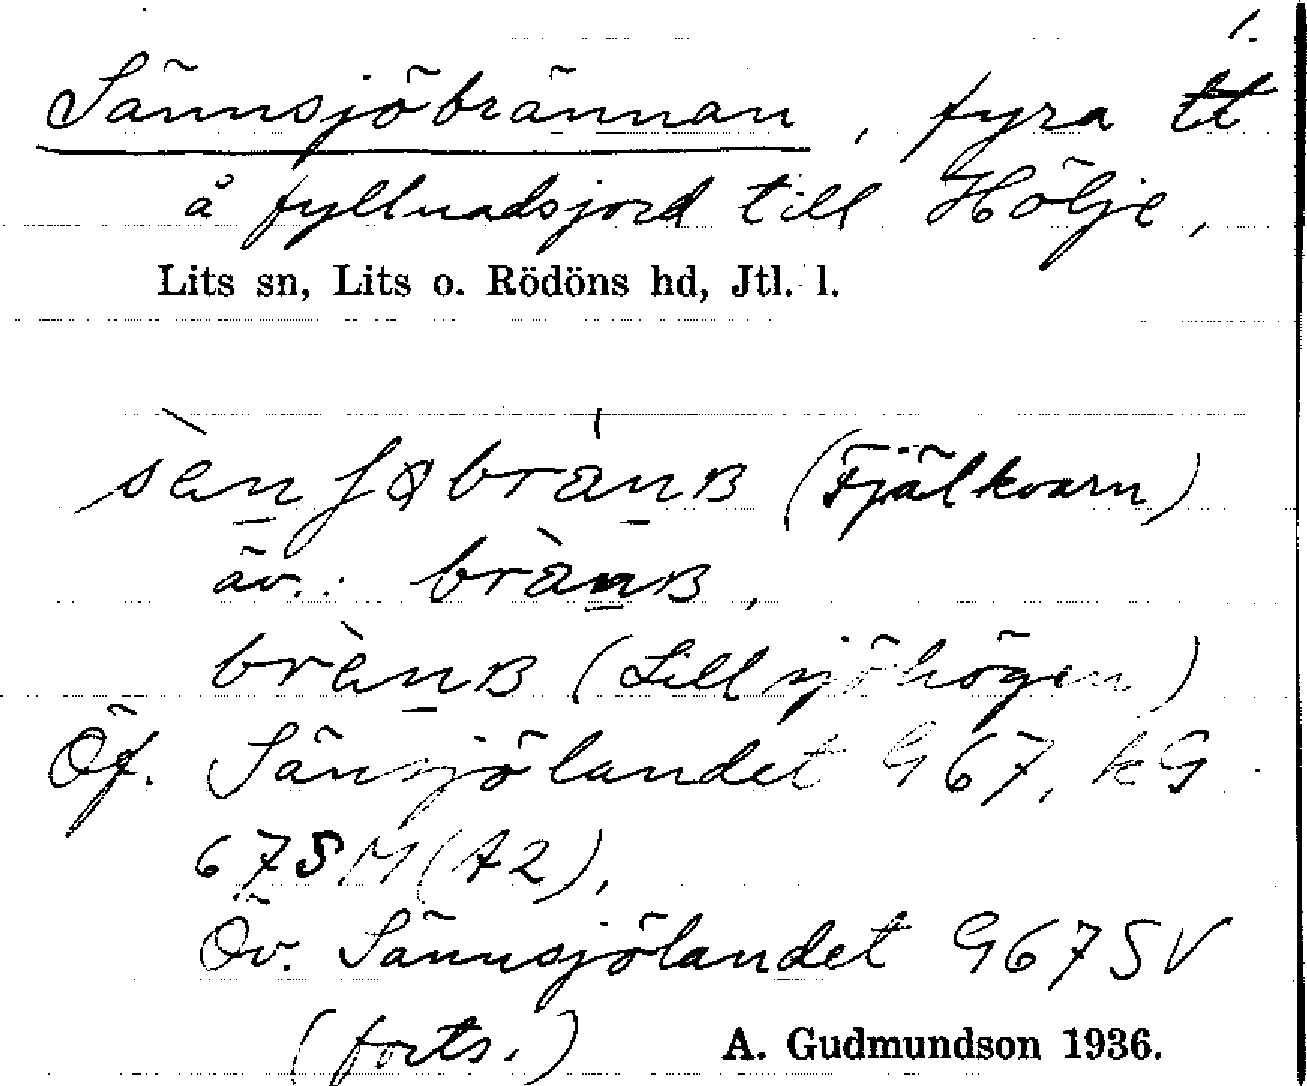 1.
Sännsjöbrännan, fyra tt
å fyllnadsjord till Hölje,
Lits sn, Lits o. Rödöns hd, Jtl. l.
(Fjälkvarn)
äv.:
(Lillsjöhögen)
Öf. Sänsjölandet G67, kG
67SM(A2),
Öv. Sännsjölandet G67SV
(forts.)
A. Gudmundson 1936.